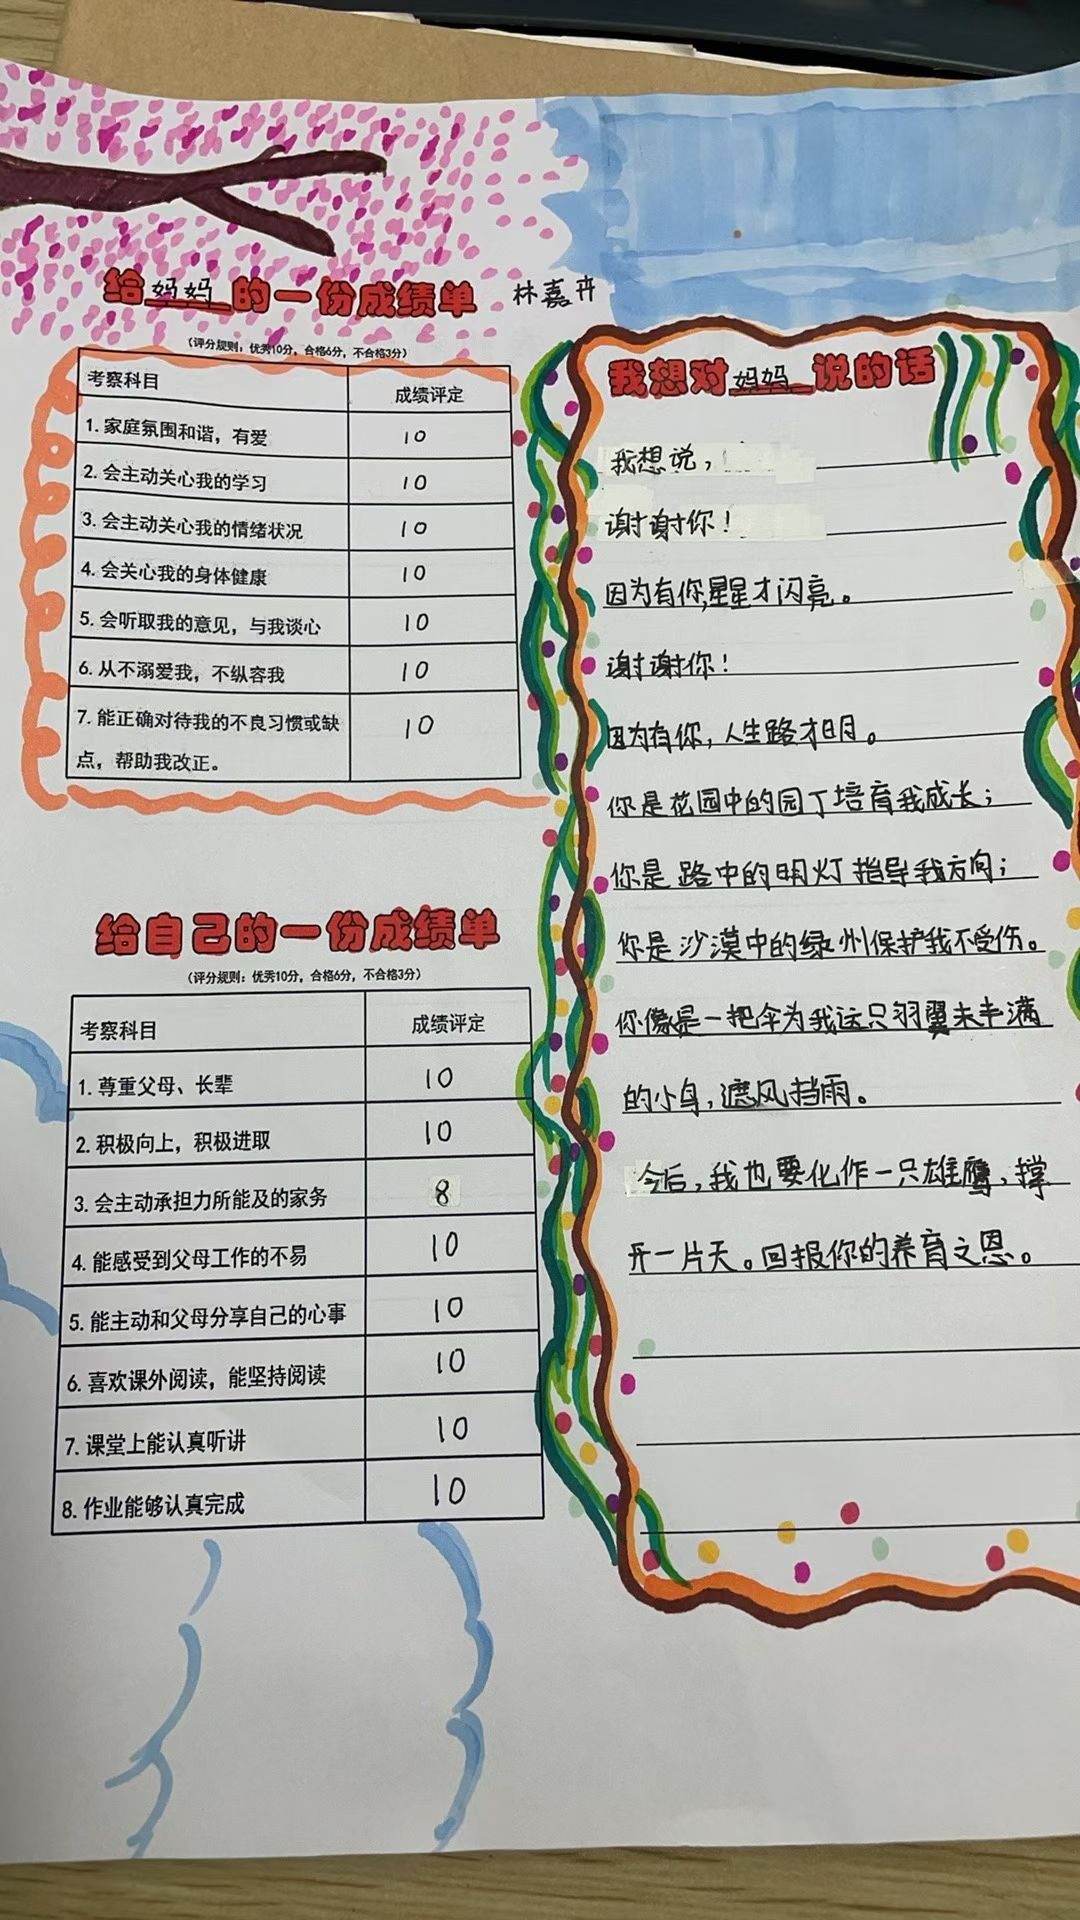 给妈妈的一份成绩单 林嘉卉
(评分规则：优秀10分，合格6分，不合格3分)
考察科目 成绩评定
1.家庭氛围和谐，有爱 10
2.会主动关心我的学习 10
3.会主动关心我的情绪状况 10
4.会关心我的身体健康 10
5.会听取我的意见，与我谈心 10
6.从不溺爱我，不纵容我 10
7.能正确对待我的不良习惯或缺 10
点，帮助我改正。
给自己的一份成绩单
(评分规则：优秀10分，合格6分，不合格3分)
考察科目 成绩评定
1.尊重父母、长辈 10
2.积极向上，积极进取 10
3.会主动承担力所能及的家务 8
4.能感受到父母工作的不易 10
5.能主动和父母分享自己的心事 10
6.喜欢课外阅读，能坚持阅读 10
7.课堂上能认真听讲 10
8.作业能够认真完成 10
我想对妈妈说的话
我想说，
谢谢你！
因为有你，星星才闪亮。
谢谢你！
因为有你，人生路才明。
你是花园中的园丁培育我成长；
你是路中的明灯指导我方向；
你是沙漠中的绿州保护我不受伤。
你像是一把伞为我这只羽翼未丰满
的小鸟，遮风挡雨。
今后，我也要化作一只雄鹰，撑
开一片天。回报你的养育之恩。